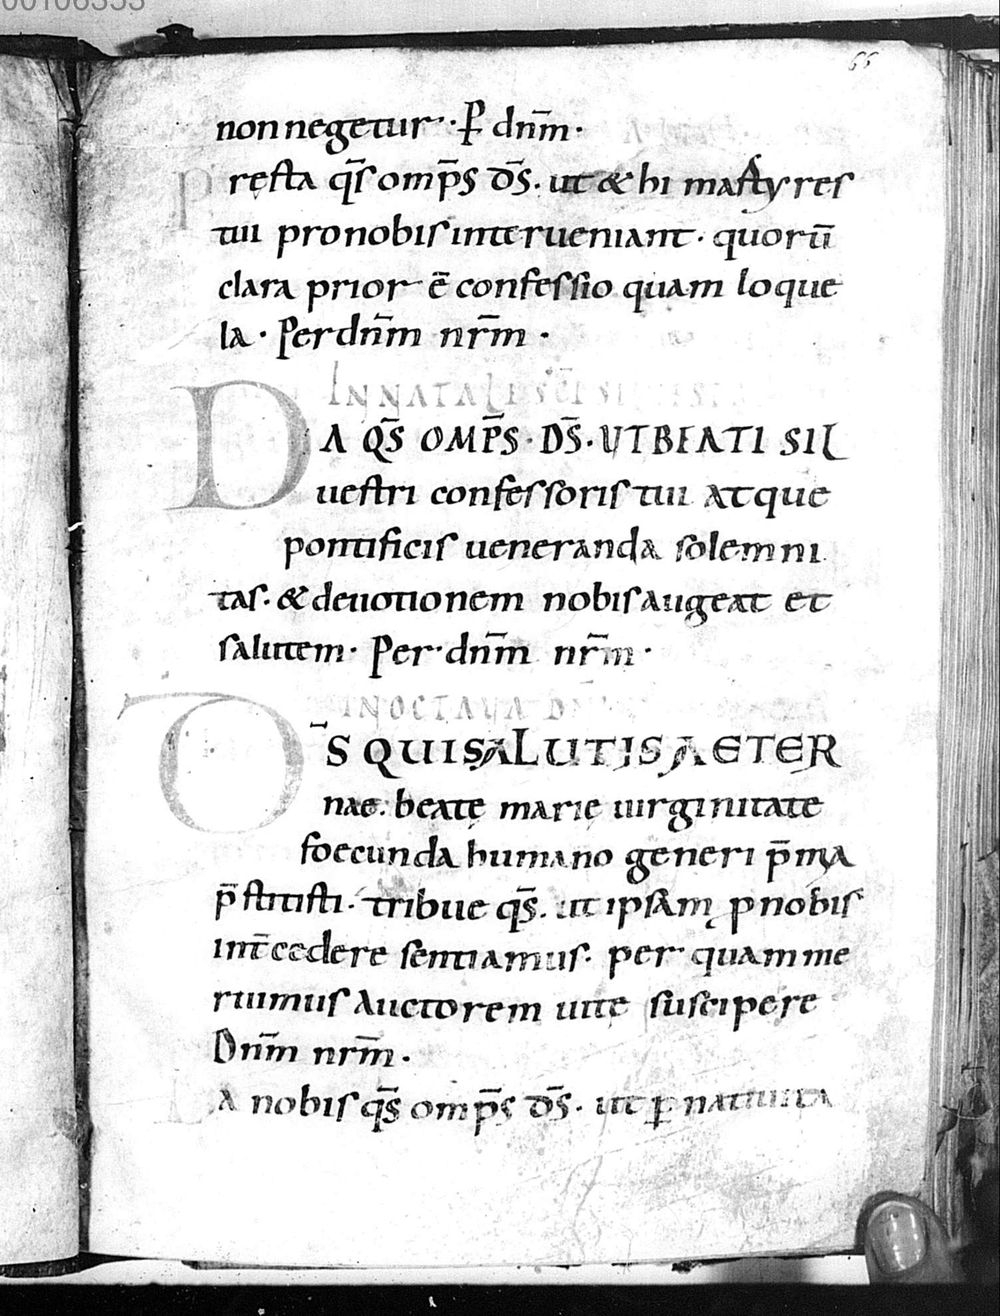 00106353
66
non negetur· p̱ dn̄m·
Pręsta qs̄ omp̄s ds̄· ut & hi martyres
tui pro nobis interueniant· quorū
clara prior ē confessio quam loque
la· Per dn̄m nr̄m·
IN NATALE SC̄I SILVESTRI
DA QS̄ OMP̄S· DS̄· UT BEATI SIL
uestri confessoris tui atque
pontificis ueneranda solemni
tas· & deuotionem nobis augeat et
salutem· Per dn̄m nr̄m·
IN OCTAUA DN̄I
DS̄ QUI SALUTIS AETER
nae· beatę marię uirginitate
foecunda humano generi p̄mia
p̄stitisti· tribue qs̄· ut ipsam ꝓ nobis
int̄cedere sentiamus· per quam me
ruimus auctorem uitę suscipere
Dn̄m nr̄m·
Da nobis qs̄ omp̄s ds̄· ut ꝑ natiuita